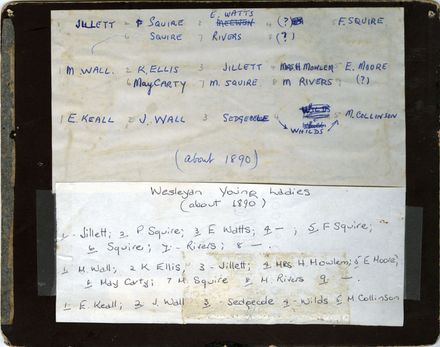 E. WATTS
1 JILLETT 2 P SQUIRE 3 4 (?) 5 F. SQUIRE
6 SQUIRE 7 RIVERS 8 (?)
1 M. WALL. 2 K. ELLIS 3 JILLETT 4 MRS H. MOWLEM 5 E. MOORE
6 MAY CARTY 7 M. SQUIRE 8 M RIVERS 9 (?)
1 E. KEALL 2 J. WALL 3 SEDGECOLE 4 5 M. COLLINSON
WHILDS
(about 1890)
Wesleyan Young Ladies
(about 1890)
1. Jillett; 2. P Squire; 3 E Watts; 4 — ; 5. F Squire;
6 Squire; 7. Rivers; 8 —.
1 M. Wall; 2 K Ellis; 3 - Jillett; 4 Mrs H. Mowlem; 5 E Moore;
6 May Carty; 7 M. Squire 8 M. Rivers 9 —.
1 E. Keall; 2 J. Wall 3 Sedgecole 4 - Wilds 5 M Collinson